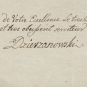 de Votre Excellence le tres
et tres obeissant serviteur
Dzierzanowski